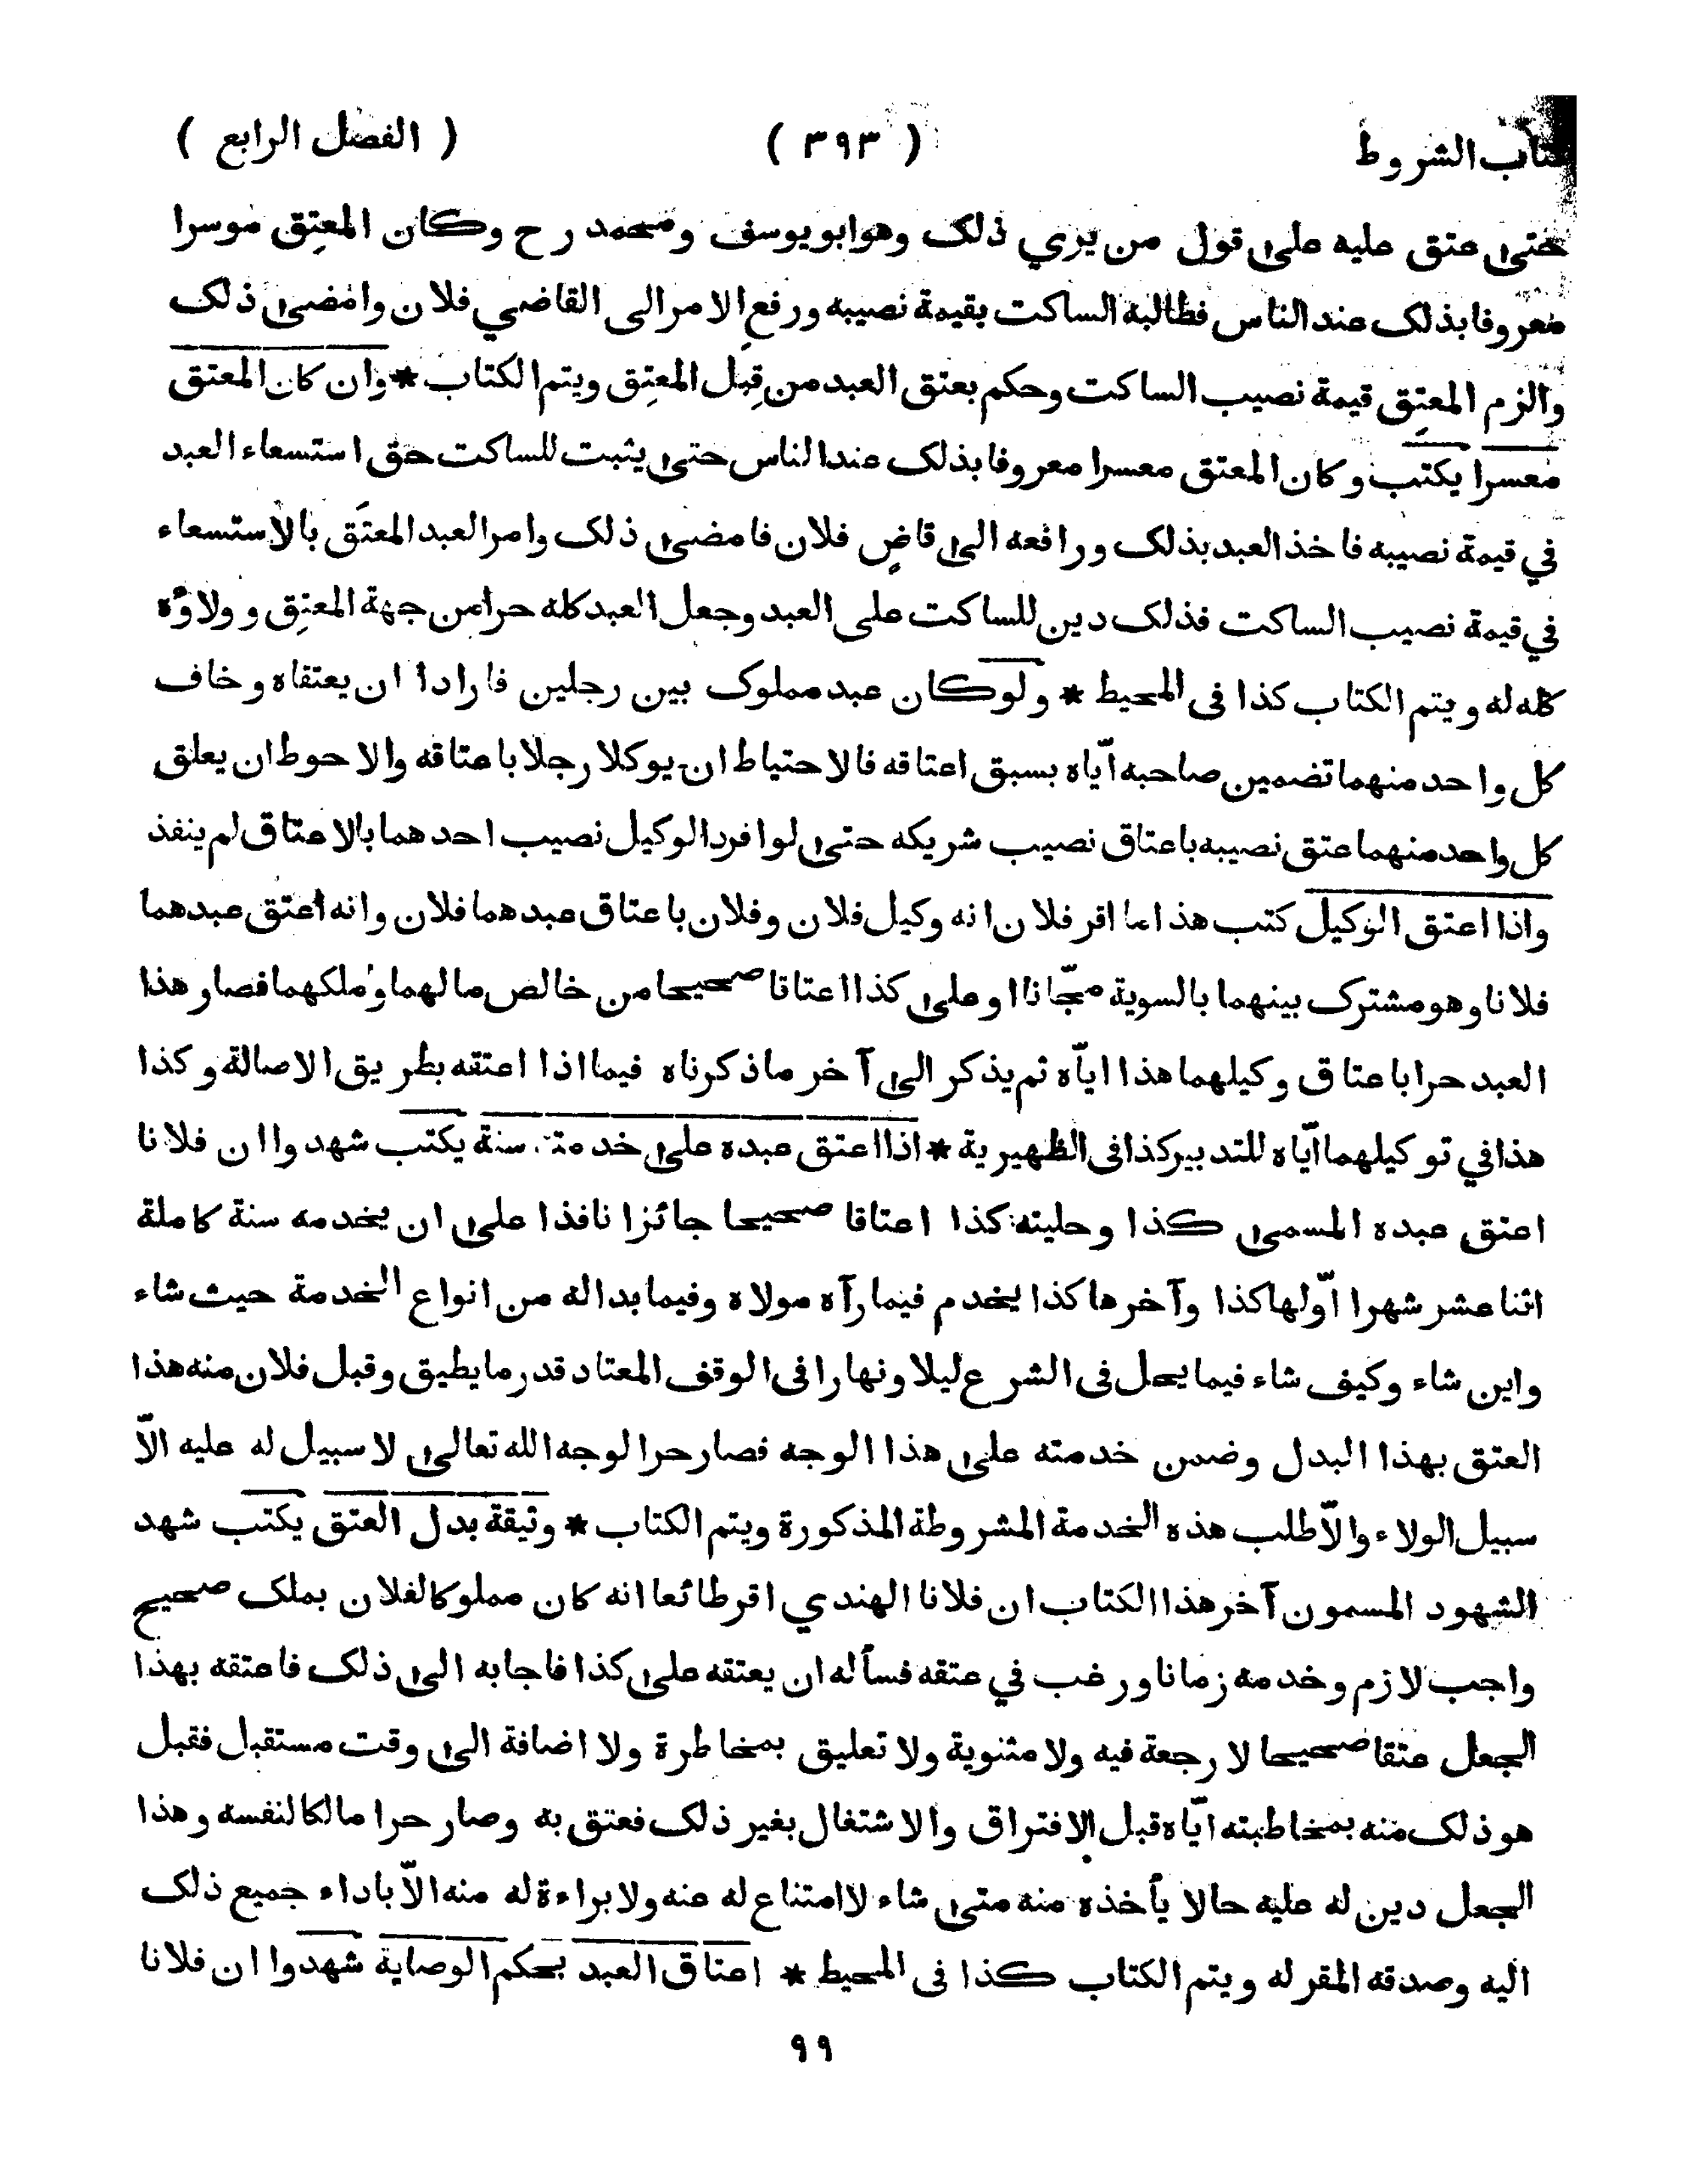 كتاب الشروط ( ٣٩٣ ) ( الفصل الرابع )
حتى عتق عليه على قول من يرى ذلك وهو ابو يوسف ومحمد رح وكان المعتِق موسرا
معروفا بذلك عند الناس فطالبه الساكت بقيمة نصيبه ورفع الامر الى القاضي فلان وامضى ذلك
والزم المعتِق قيمة نصيب الساكت وحكم بعتق العبد من قِبَل المعتِق ويتم الكتاب * وان كان المعتق
معسرا يكتب وكان المعتق معسرا معروفا بذلك عند الناس حتى يثبت للساكت حق استسعاء العبد
في قيمة نصيبه فاخذ العبد بذلك ورافعه الى قاضٍ فلان فامضى ذلك وامر العبد المعتَق بالاستسعاء
في قيمة نصيب الساكت فذلك دين للساكت على العبد وجعل العبد كله حرا من جهة المعتِق وولاؤه
كله له ويتم الكتاب كذا فى المحيط * ولو كان عبد مملوك بين رجلين فارادا ان يعتقاه وخاف
كل واحد منهما تضمين صاحبه ايّاه بسبق اعتاقه فالاحتياط ان يوكلا رجلا باعتاقه والاحوط ان يعلق
كل واحد منهما عتق نصيبه باعتاق نصيب شريكه حتى لو افرد الوكيل نصيب احدهما بالاعتاق لم ينفذ
واذا اعتق الوكيل كتب هذا ما اقر فلان انه وكيل فلان وفلان باعتاق عبدهما فلان وانه اعتق عبدهما
فلانا وهو مشترك بينهما بالسوية مجّانا او على كذا اعتاقا صحيحا من خالص مالهما وملكهما فصار هذا
العبد حرا باعتاق وكيلهما هذا ايّاه ثم يذكر الى آخر ما ذكرناه فيما اذا اعتقه بطريق الاصالة وكذا
هذا في توكيلهما ايّاه للتدبير كذا فى الظهيرية * اذا اعتق عبده على خدمته سنة يكتب شهدوا ان فلانا
اعتق عبده المسمى كذا وحليته كذا اعتاقا صحيحا جائزا نافذا على ان يخدمه سنة كاملة
اثنا عشر شهرا اوّلها كذا وآخرها كذا يخدم فيما رآه مولاه وفيما بدا له من انواع الخدمة حيث شاء
واين شاء وكيف شاء فيما يحل فى الشرع ليلا ونهارا فى الوقف المعتاد قدر ما يطيق وقبل فلان منه هذا
العتق بهذا البدل وضمن خدمته على هذا الوجه فصار حرا لوجه الله تعالى لا سبيل له عليه الاّ
سبيل الولاء والاّ طلب هذه الخدمة المشروطة المذكورة ويتم الكتاب * وثيقة بدل العتق يكتب شهد
الشهود المسمون آخر هذا الكتاب ان فلانا الهندي اقر طائعا انه كان مملوكا لفلان بملك صحيح
واجب لازم وخدمه زمانا ورغب في عتقه فسأله ان يعتقه على كذا فاجابه الى ذلك فاعتقه بهذا
الجعل عتقا صحيحا لا رجعة فيه ولا مثنوية ولا تعليق بمخاطرة ولا اضافة الى وقت مستقبل فقبل
هو ذلك منه بمخاطبته ايّاه قبل الافتراق والاشتغال بغير ذلك فعتق به وصار حرا مالكا لنفسه وهذا
الجعل دين له عليه حالا يأخذه منه متى شاء لا امتناع له عنه ولا براءة له منه الاّ باداء جميع ذلك
اليه وصدقه المقر له ويتم الكتاب كذا فى المحيط * اعتاق العبد بحكم الوصاية شهدوا ان فلانا
٩٩